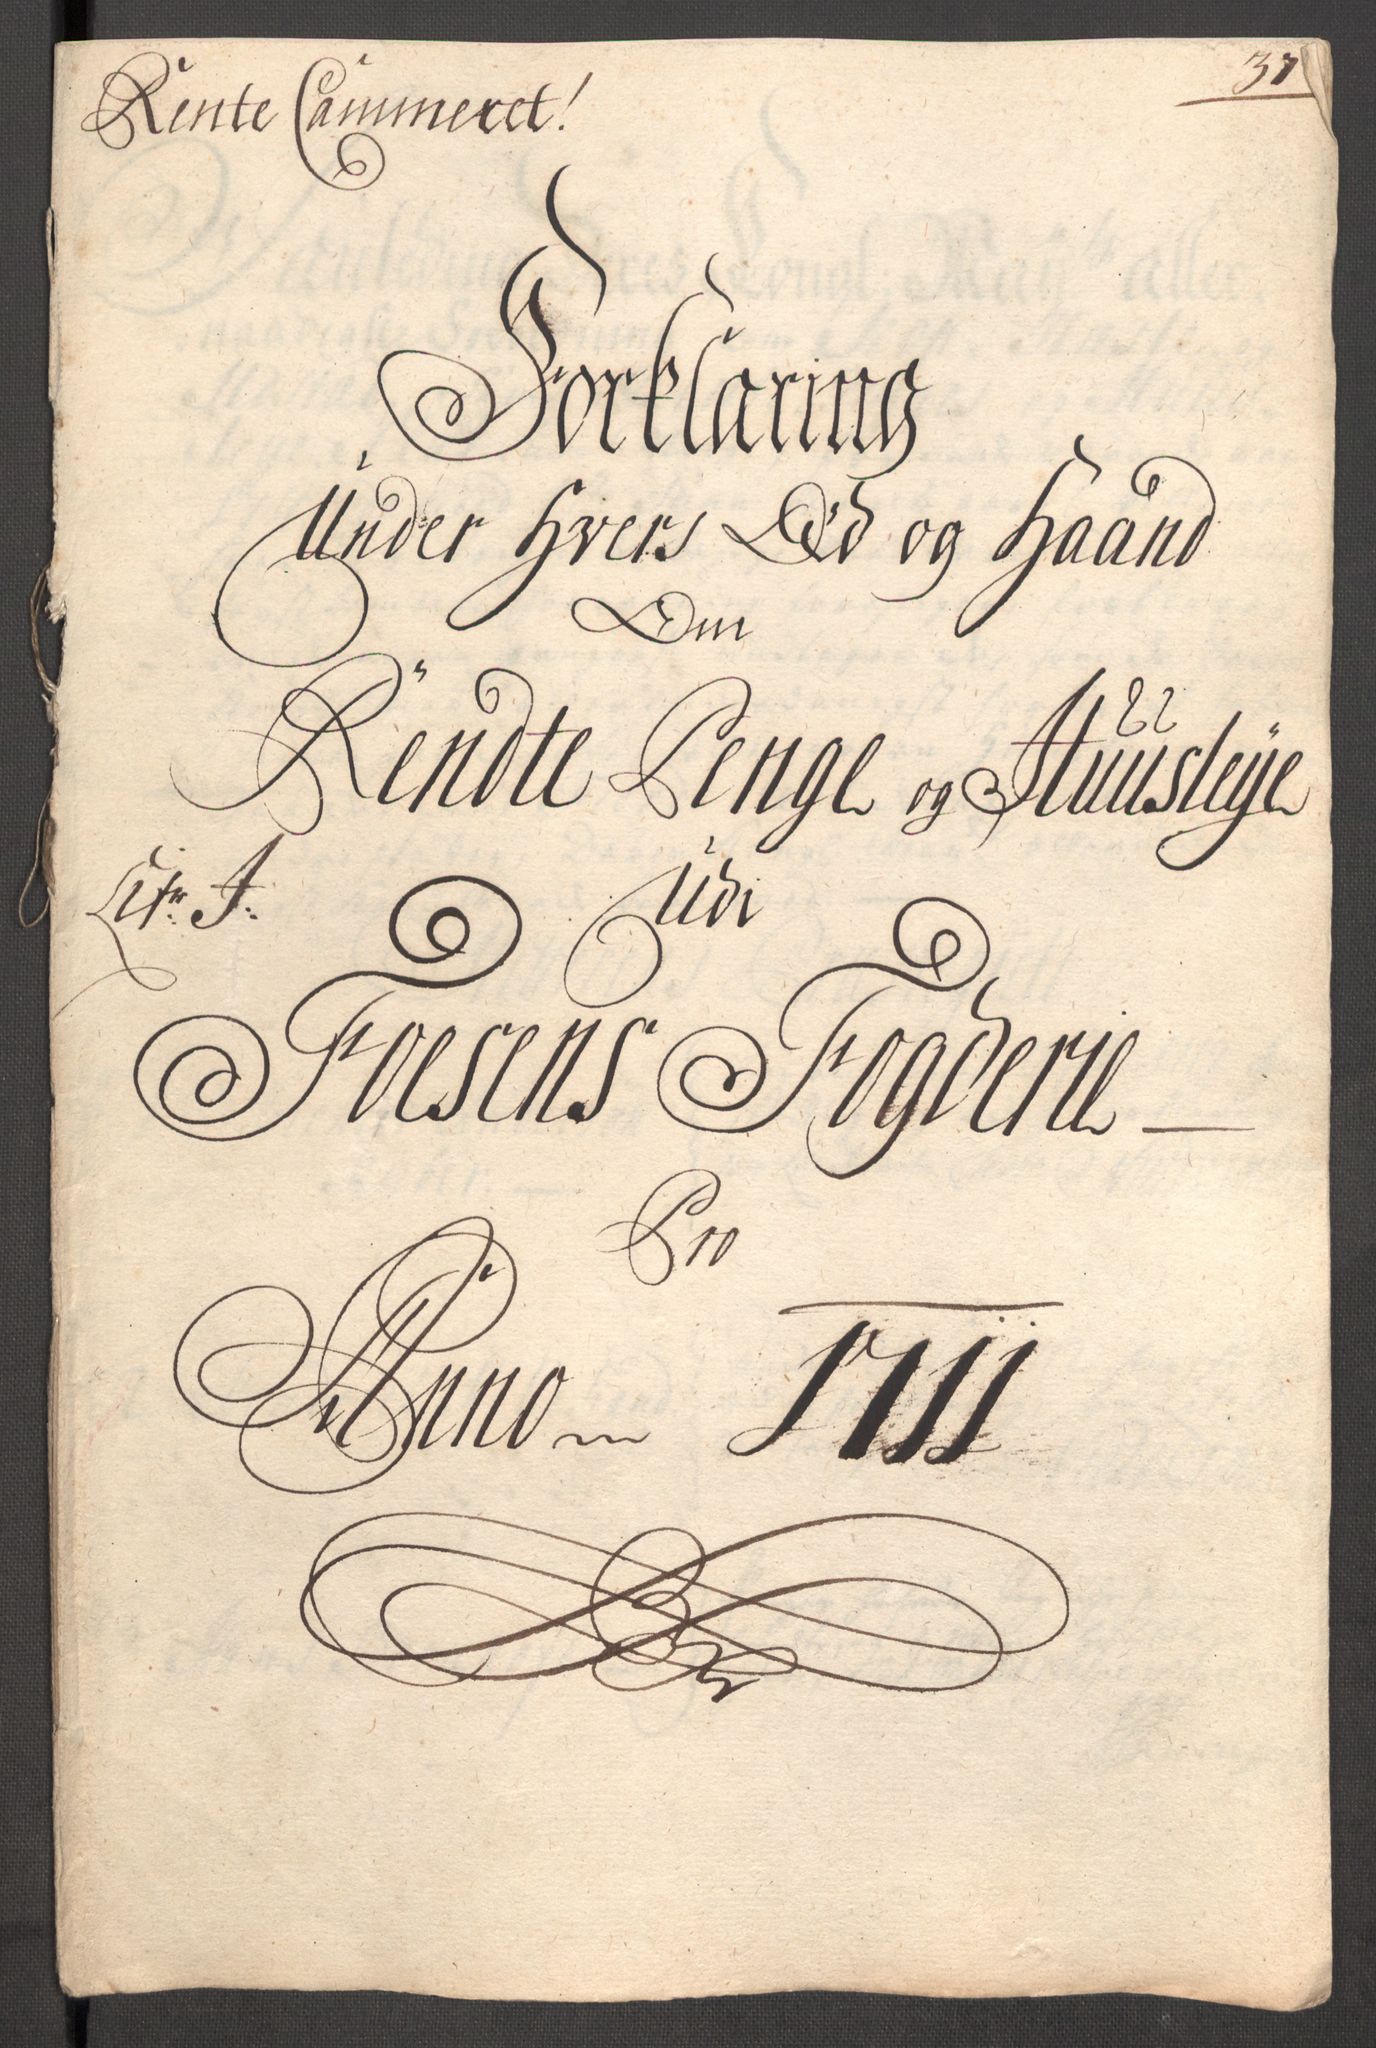 37
Rente Cammeret!
Forklaring
Under hvers Eed og Haand
Om
Rendte Penge og Huusleye
Litr: J:
Udi
Foesens Fogderie
Pro
Anno 1711